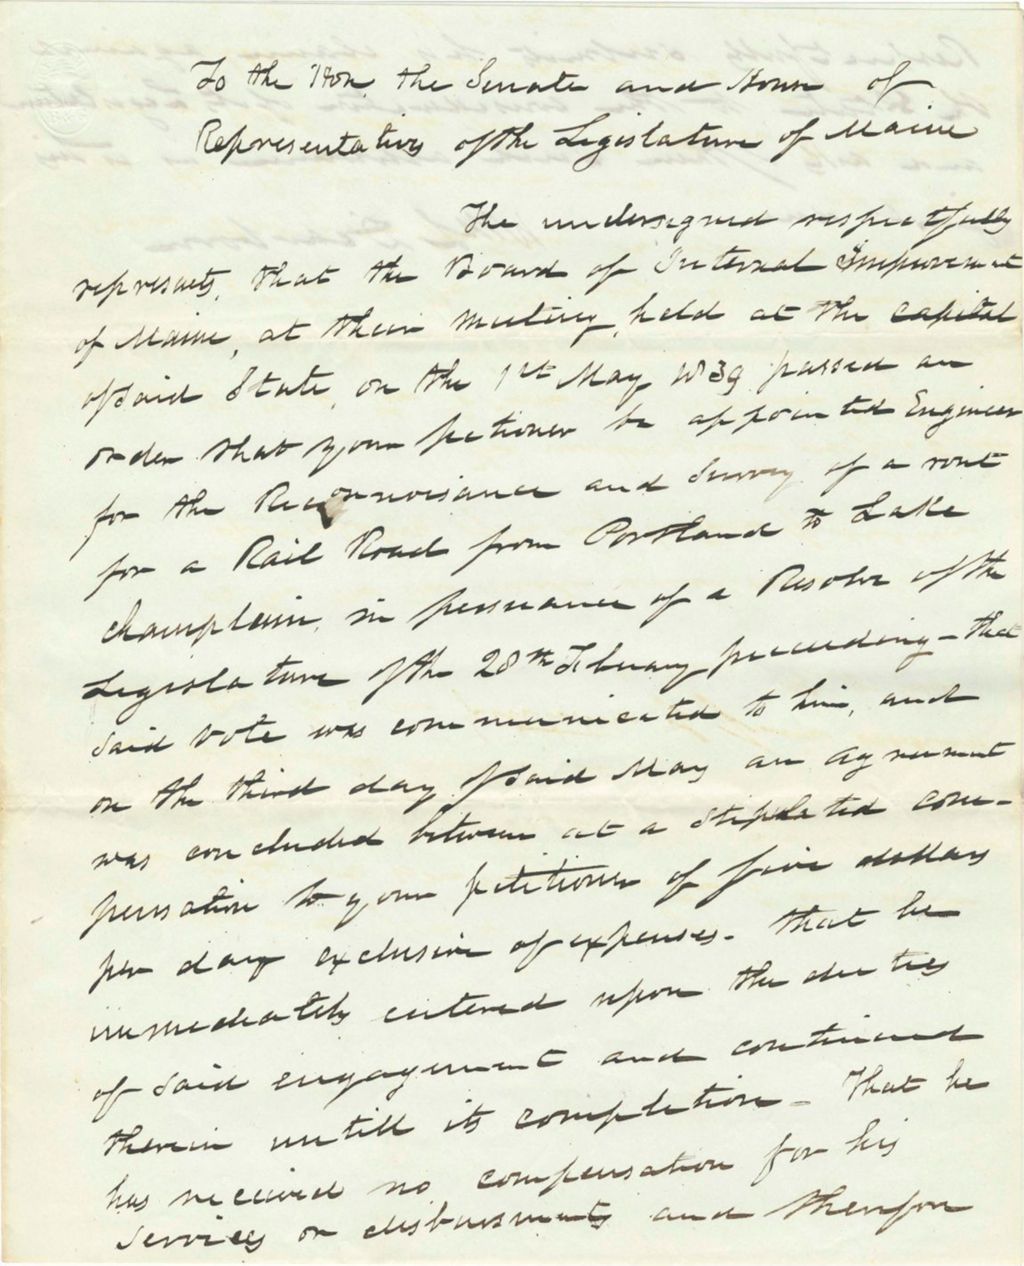 To the Hon the Senate and House of
Representatives of the Legislature of Maine
The undersigned respectfully
represents, that the Board of Internal Improvement
of Maine, at their meeting, held at the capital
of said State, on the 1st May 1839 passed an
order that your petioner be appointed Engineer
for the Reconnoisance and Survey of a rout
for a Rail Road from Portland to Lake
Champlain, in persuance of a Resolve of the
Legislature of the 28th February preceeding - that
said vote was communicated to him, and
on the third day of said May an agreement
was concluded between at a stipulated com-
pensation to your petitioner of five dollars
per day exclusive of expenses. That he
immediately entered upon the duties
of said engagement and continued
therein untill its completion - That he
has received no compensation for his
services or disbursments and therefore